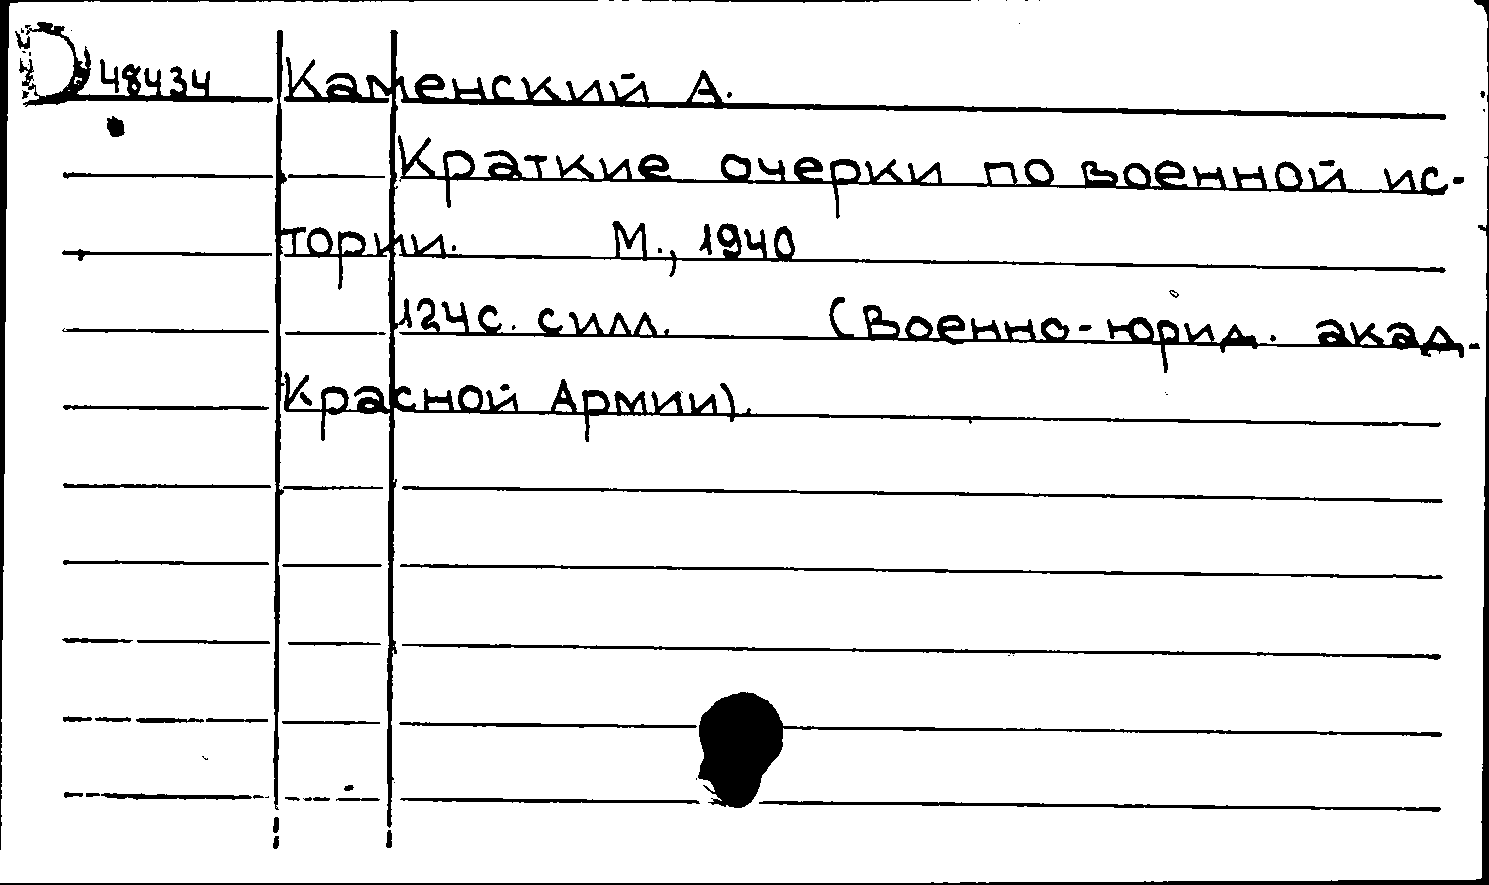 D 48434 Каменский А.
Краткие очерки по военной ис-
тории. М., 1940
124с. с илл. (Военно-юрид. акад.
Красной Армии).